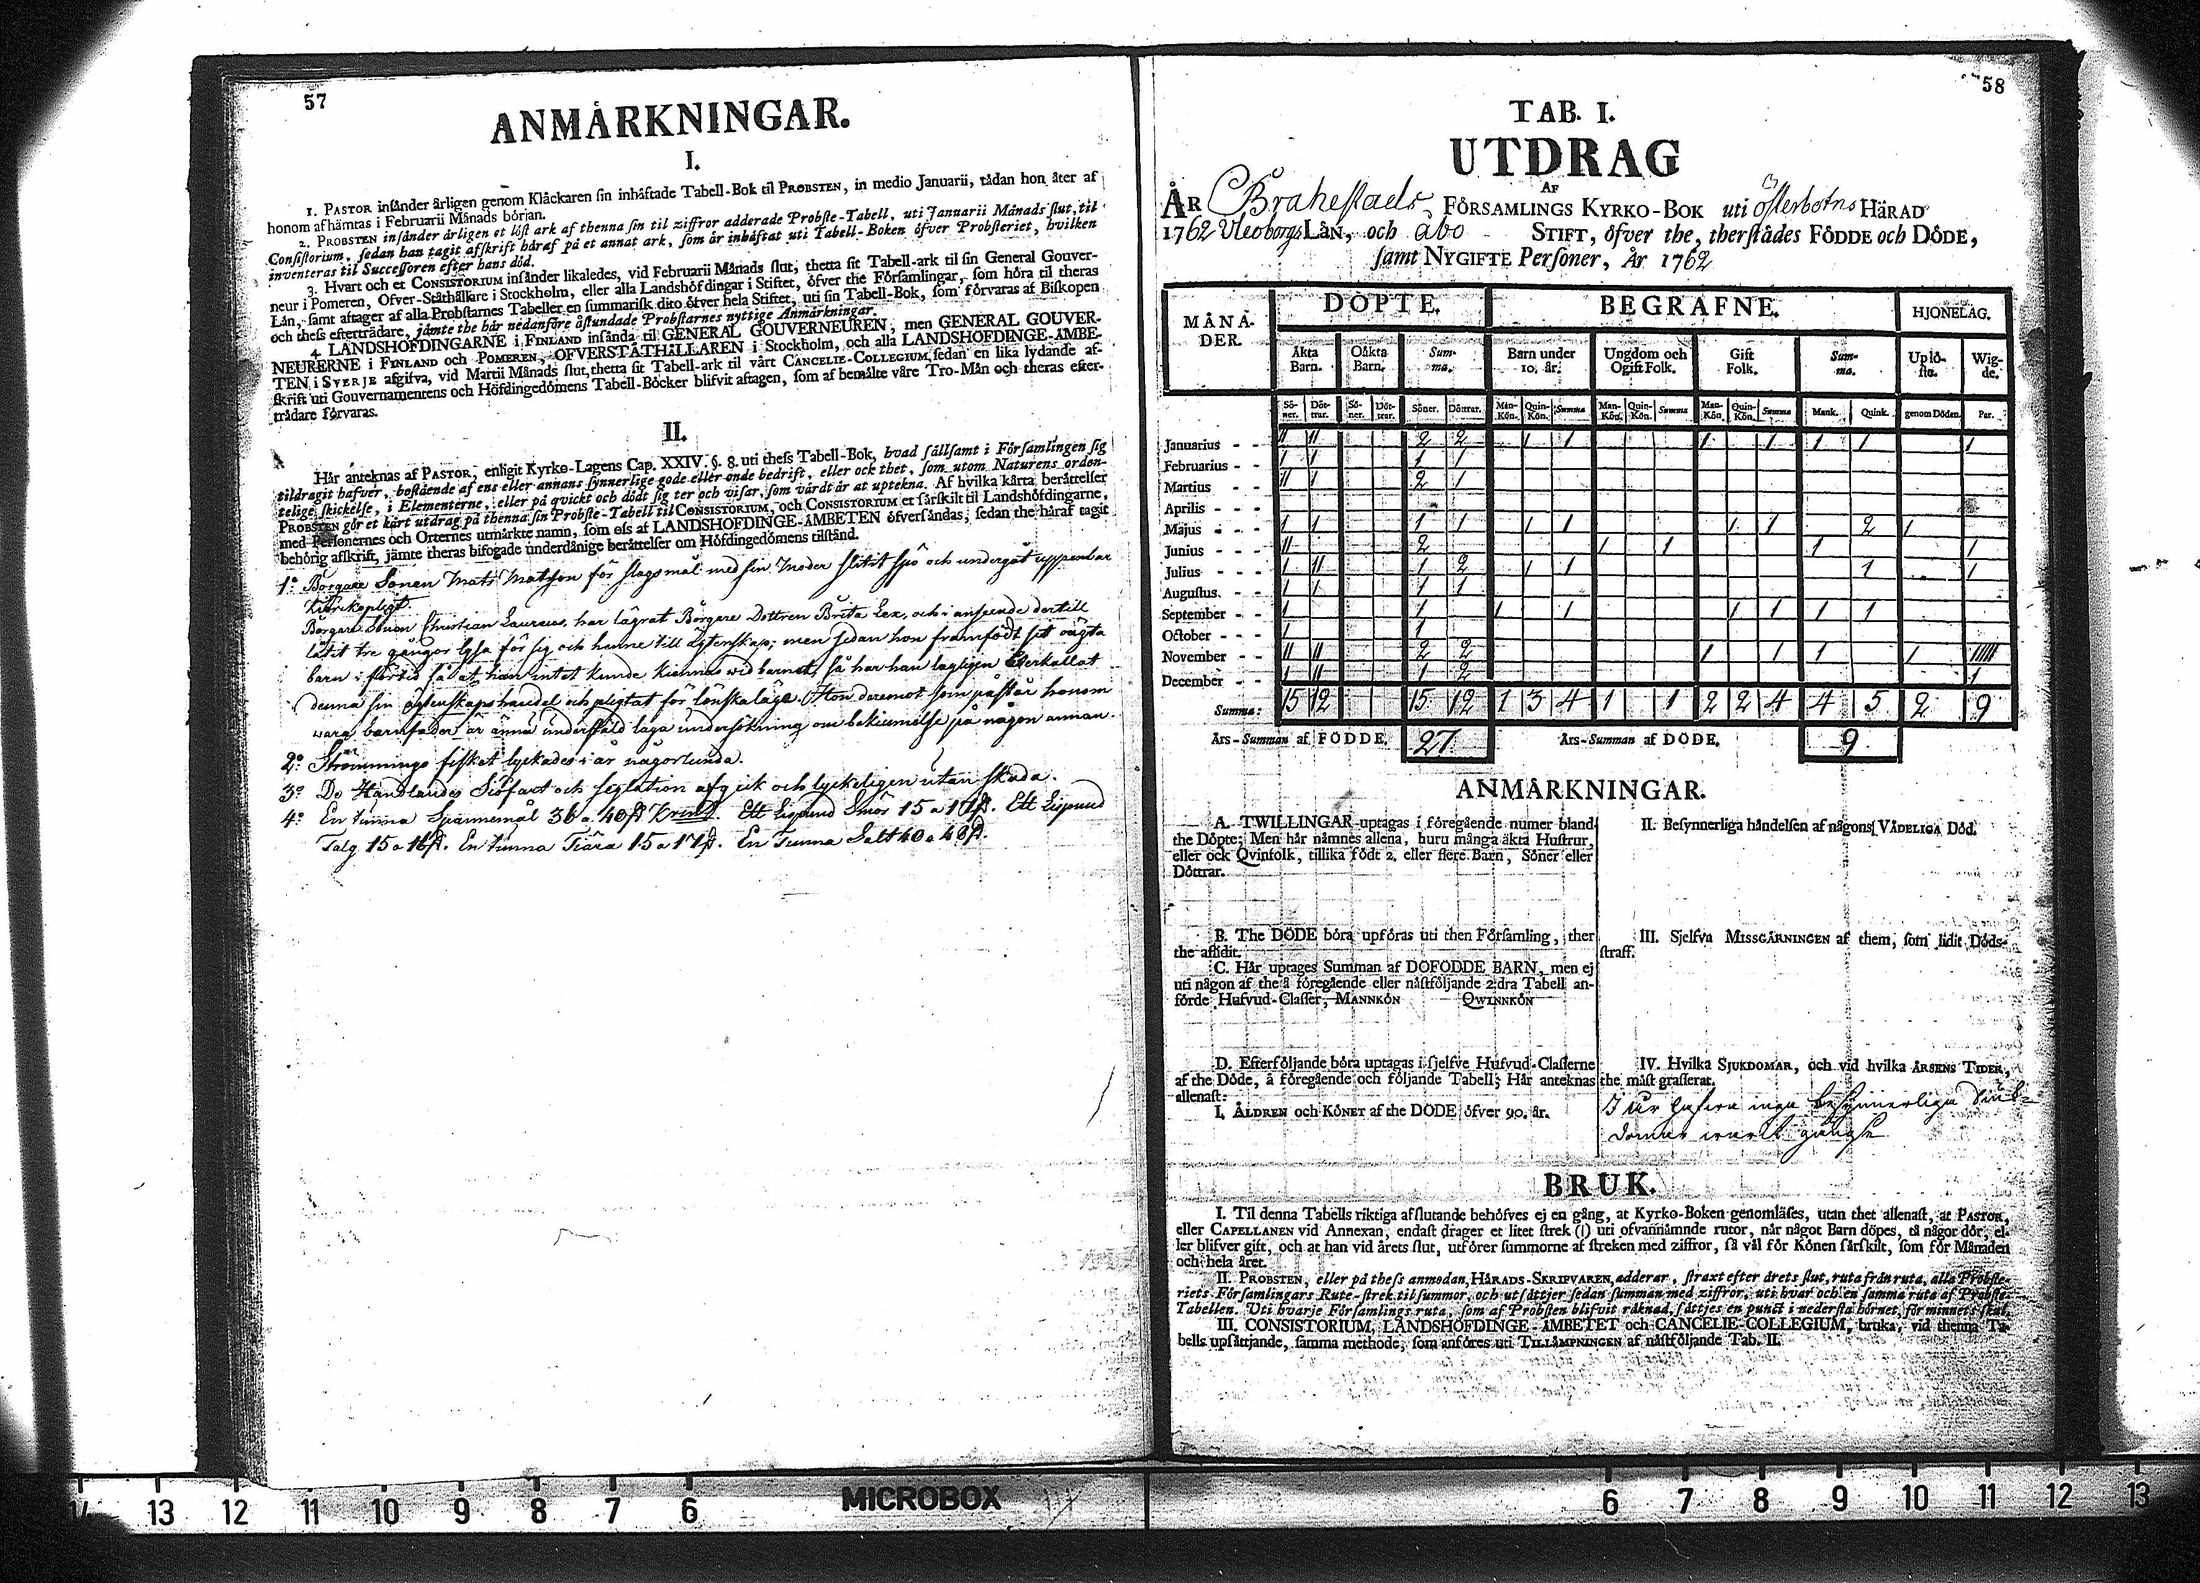 57
ANMÄRKNINGAR.
I.
1. PASTOR insänder årligen genom Klåckaren sin inhäftade Tabell-Bok til PROBSTEN, in medio Januarii, tådan hon åter af
honom afhämtas i Februarii Månads början.
2. PROBSTEN insänder årligen et löst ark af thenna sin til ziffror adderade Probste-Tabell, uti Januarii Månads slut, til
Consistorium, sedan han tagit afskrift häraf på et annat ark, som är inhäftat uti Tabell-Boken öfver Probsteriet, hvilken
inventeras til Successoren efter hans död.
3. Hvart och et CONSISTORIUM insänder likaledes, vid Februarii Månads slut, thetta sit Tabell-ark til sin General Gouver-
neur i Pomeren, Öfver-Ståthållare i Stockholm, eller alla Landshöfdingar i Stiftet, öfver the Församlingar, som höra til theras
Län, samt aftager af alla Probstarnes Tabeller en summarisk dito öfver hela Stiftet, uti sin Tabell-Bok, som förvaras af Biskopen
och thess efterträdare, jämte the här nedanföre åstundade Probstarnes nyttige Anmärkningar.
4. LANDSHÖFDINGARNE i FINLAND insända til GENERAL GOUVERNEUREN, men GENERAL GOUVER-
NEURERNE i FINLAND och POMEREN, ÖFVERSTÅTHÅLLAREN i Stockholm, och alla LANDSHÖFDINGE-ÄMBE-
TEN i SVERJE afgifva, vid Martii Månads slut, thetta sit Tabell-ark til vårt CANCELIE-COLLEGIUM, sedan en lika lydande af-
skrift uti Gouvernamentens och Höfdingedömens Tabell-Böcker blifvit aftagen, som af bemälte våre Tro-Män och theras efter-
trädare förvaras.
II.
Här anteknas af PASTOR, enligit Kyrko-Lagens Cap. XXIV. §. 8. uti thess Tabell-Bok, hvad sällsamt i Församlingen sig
tildragit hafver, bestående af ens eller annans synnerlige gode eller onde bedrift, eller ock thet, som utom Naturens orden-
telige skickelse, i Elementerne, eller på qvickt och dödt sig ter och visar, som värdt är at uptekna. Af hvilka kårta berättelser
PROBSTEN gör et kårt utdrag på thenna sin Probste-Tabell til CONSISTORIUM, och CONSISTORIUM et särskilt til Landshöfdingarne,
med Personernes och Orternes utmärkte namn, som oss af LANDSHÖFDINGE-ÄMBETEN öfversändas, sedan the häraf tagit
behörig afskrift, jämte theras bifogade underdånige berättelser om Höfdingedömens tilstånd.
1:o Borgare Sonen Mats Matsson för slagsmål med sin Moder slitit spö och undergåt uppenbar
kyrckoplicht.
Borgare Sonen Christian Laureus, har lägrat Borgare Dottren Brita Lex, och i anseende dertill
låtit tre gångor lysa för sig och henne till ägtenskap; men sedan hon framfödt sitt oägta
barn i förtid så at han intet kunde kiennas wid barnet, så har han lagligen återkallat
denna sin ägtenskaps handel och pligtat för lönskaläge. Hon deremot som påstår honom
wara barnfader är ännu underståld laga undersökning om bekiennelse på någon annan.
2:o Strömmings fisket lyckades i år någorlunda.
3:o De Handlandes Siöfart och seglation afgick och lyckeligen utan skada.
4:o En tunna Spannemål 36 a 40 Ett Lispund Smör 15 a 16 Ett Lispund
Talg 15 a 16. En tunna Tiära 15 a 17. En Tunna Salt 40 a 48.
58
TAB. I.
UTDRAG
AF
ÅR Brahestads FÖRSAMLINGS KYRKO-BOK uti Österbotns HÄRAD
1762 Uleoborgs LÄN, och Åbo STIFT, öfver the, therstädes FÖDDE och DÖDE,
samt NYGIFTE Personer, År 1762
MÅNADER. DÖPTE. BEGRAFNE. HJONELAG.
Äkta Barn. Oäkta Barn. Summa. Barn under 10. år. Ungdom och Ogift Folk. Gift Folk. Summa. Uplöste. Wigde.
Söner. Döttrar. Söner. Döttrar. Söner. Döttrar. Mankön. Quinkön. Summa Mankön. Quinkön. Summa Mankön. Quinkön. Summa Mank. Quink. genom Döden. Par.
Januarius - - II II 2 2 1 1 1 1 1 1 1
Februarius - - 1 1 1 1
Martius - - - II 1 2 1
Aprilis - - -
Majus - - - 1 1 1 1 1 1 1 1 2 1
Junius - - - II 2 1 1 1 1
Julius - - - 1 II 1 2 1 1 1 1
Augustus. - - 1 1 1 1
September - - - 1 1 1 1 1 1 1 1
October - - - 1 1
November - - - II II 2 2 1 1 1 1 IIIII
December - - 1 II 1 2 1
Summa: 15 12 15 12 1 3 4 1 1 2 2 4 4 5 2 9
Års-Summan af FÖDDE. 27 Års-Summan af DÖDE. 9
ANMÄRKNINGAR.
A. TWILLINGAR uptagas i föregående numer bland
the Döpte; Men här nämnes allena, huru många äkta Hustrur,
eller ock Qvinfolk, tillika födt 2. eller flere Barn, Söner eller
Döttrar.
B. The DÖDE böra upföras uti then Församling, ther
the afsidit.
C. Här uptages Summan af DÖFÖDDE BARN, men ej
uti någon af the å föregående eller nästföljande 2:dra Tabell an-
förde Hufvud-Classer, MANNKÖN QWINNKÖN
D. Efterföljande böra uptagas i sjelfve Hufvud-Classerne
af the Döde, å föregående och följande Tabell; Här anteknas
allenast:
I. ÅLDREN och KÖNET af the DÖDE öfver 90. år.
II. Besynnerliga händelsen af någons VÅDELIGA Död.
III. Sjelfva MISSGÄRNINGEN af them, som lidit Döds-
straff.
IV. Hvilka SJUKDOMAR, och vid hvilka ÅRSENS TIDER,
the mäst grasserat.
I år hafwa inga besynnerliga Siuk-
domar warit gångse
BRUK.
I. Til denna Tabells riktiga afslutande behöfves ej en gång, at Kyrko-Boken genomläses, utan thet allenast, at PASTOR,
eller CAPELLANEN vid Annexan, endast drager et litet strek (|) uti ofvannämnde rutor, når något Barn döpes, så någor dör, el-
ler blifver gift, och at han vid årets slut, utförer summorne af streken med ziffror, så väl för Könen särskilt, som för Månaden
och hela året.
II. PROBSTEN, eller på thess anmodan, HÄRADS-SKRIFVAREN, adderar, straxt efter årets slut, ruta från ruta, alla Probste-
riets Församlingars Rute-strek til summor, och utsättjer sedan summan med ziffror, uti hvar och en samma ruta af Probste-
Tabellen. Uti hvarje Församlings ruta, som af Probsten blifvit räknad, sättjes en punct i nedersta hörnet, för minnets skul.
III. CONSISTORIUM, LANDSHÖFDINGE-ÄMBETET och CANCELIE-COLLEGIUM, bruka, vid thenna Ta-
bells upsättjande, samma methode, som anföres uti TILLÄMPNINGEN af nästföljande Tab. II.
14 13 12 11 10 9 8 7 6 MICROBOX 6 7 8 9 10 11 12 13